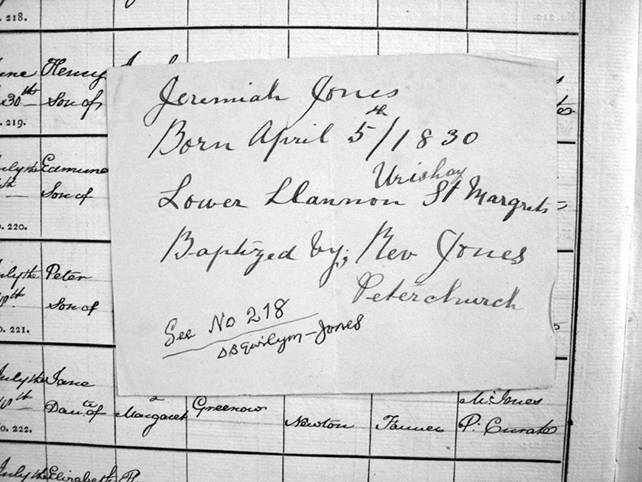 218.
Henry
30th Son of
219.
July the Edmund
Son of
220.
July the Peter
Son of
221.
July the Jane
Daur. of Margaret Greenow Newton Farmer Wm Jones
P. Curate
222.
July the Elizabeth P
Jeremiah Jones
Born April 5th/1830
Urishay
Lower Llannon St Margrets =
Baptized by; Rev Jones
Peterchurch
See No 218
DB Gwilym-Jones